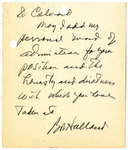 To Calvin
May I add my
personal word of
admiration for your
position and the
honesty and directness
with which you have
taken it